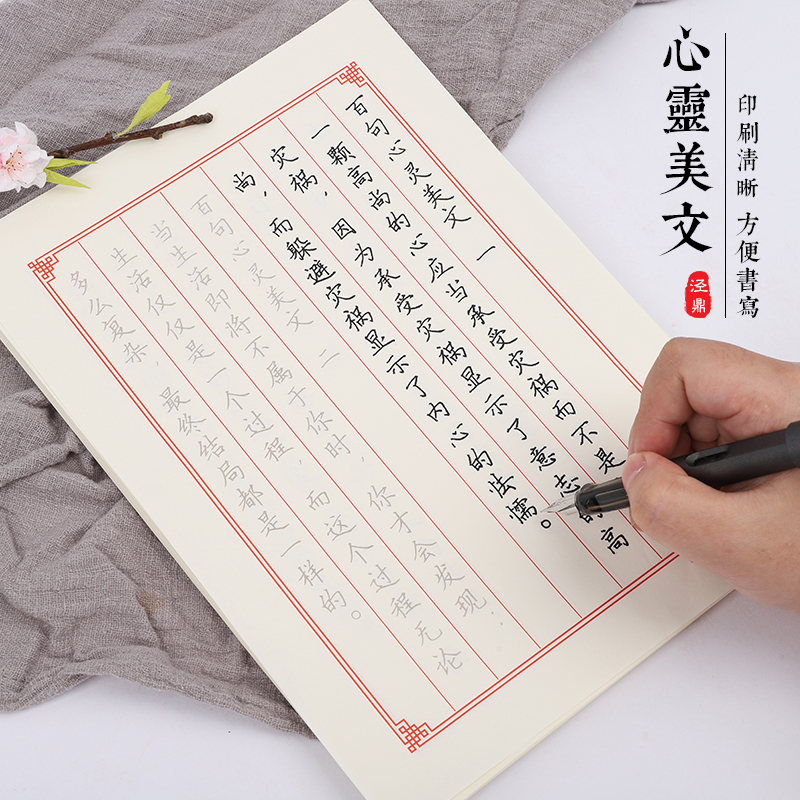 心靈美文
印刷清晰 方便書寫
泾鼎
百句心灵美文 一
一颗高尚的心应当承受灾祸而不是
灾祸，因为承受灾祸显示了意志的高
尚，而躲避灾祸显示了内心的怯懦。
百句心灵美文 二
当生活即将不属于你时，你才会发现：
生活仅仅是一个过程，而这个过程无论
多么复杂，最终结局都是一样的。